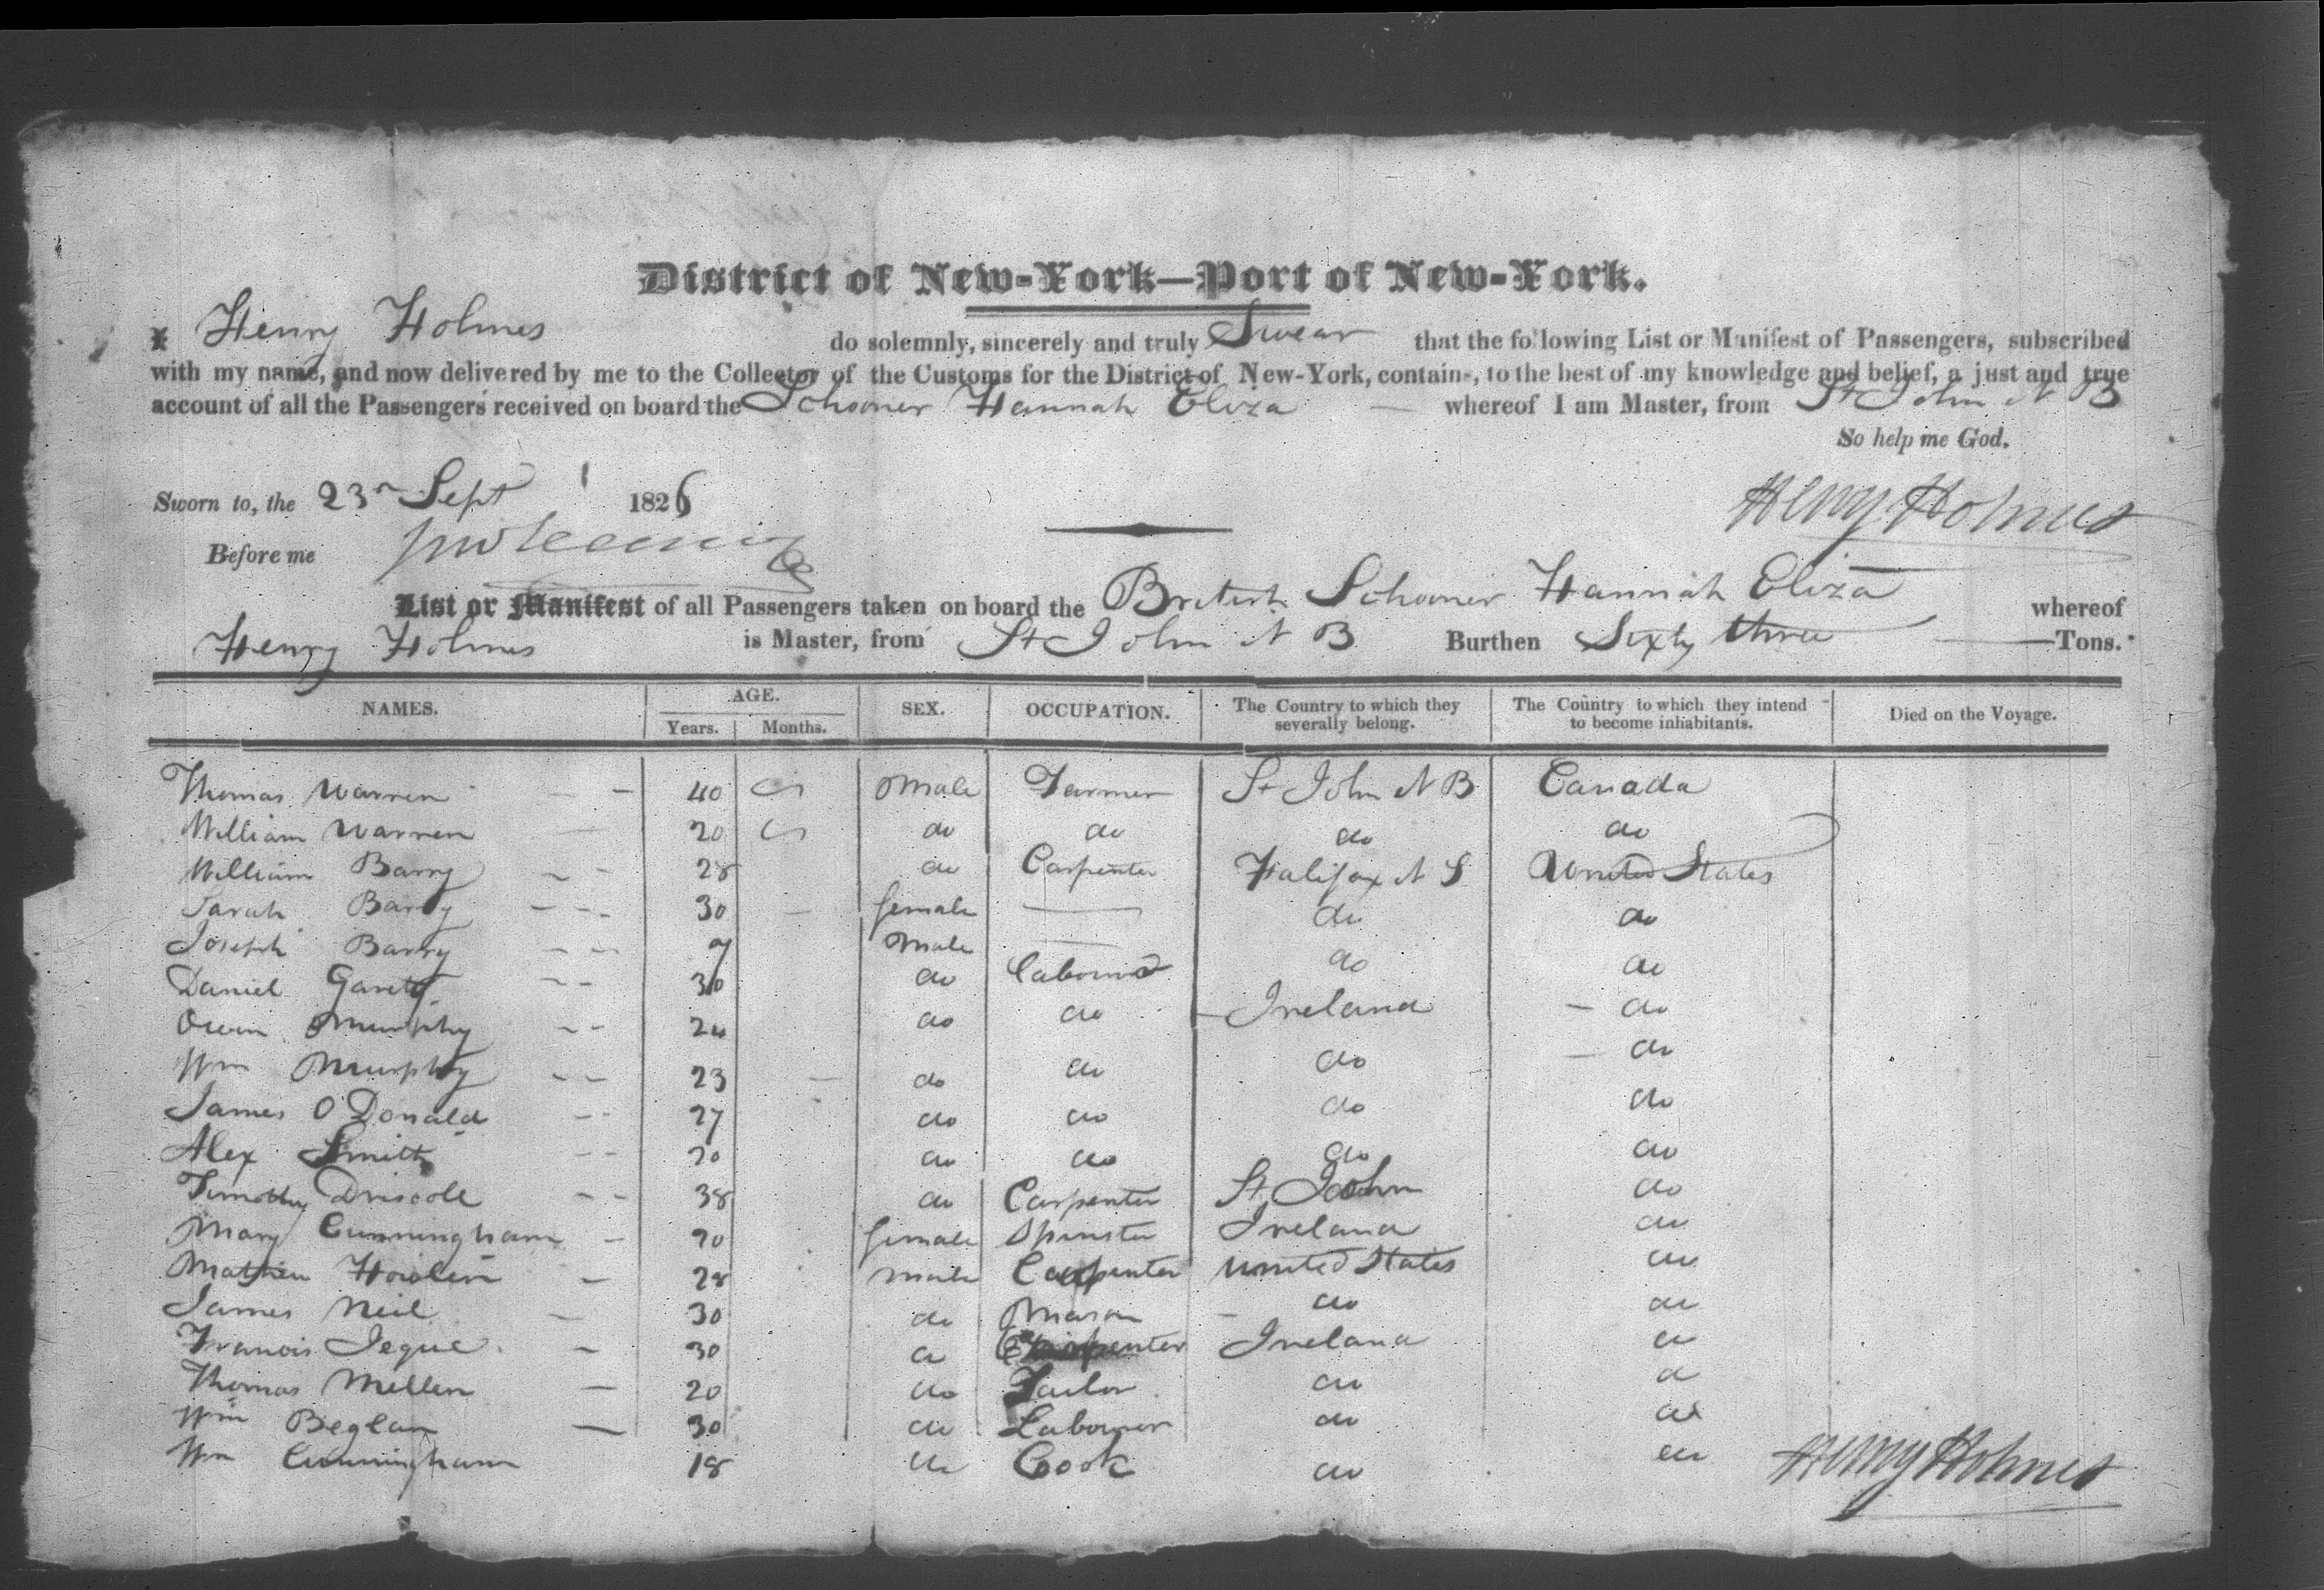 District of New-York—Port of New-York.
I Henry Holmes do solemnly, sincerely and truly Swear that the following List or Manifest of Passengers, subscribed
with my name, and now delivered by me to the Collector of the Customs for the District of New-York, contains, to the best of my knowledge and belief, a just and true
account of all the Passengers received on board the Schooner Hannah Eliza — whereof I am Master, from St John N B
So help me God.
Sworn to, the 23 Sept 1826
Henry Holmes
Before me
List or Manifest of all Passengers taken on board the British Schooner Hannah Eliza whereof
Henry Holmes is Master, from St John N B Burthen Sixty three — Tons.
NAMES. AGE. Years. Months. SEX. OCCUPATION. The Country to which they severally belong. The Country to which they intend to become inhabitants. Died on the Voyage.
Thomas Warren 40 Male Farmer St John N B Canada
William Warren 20 do do do do
William Barry 28 do Carpenter Halifax N S United States
Sarah Barry 30 female — do do
Joseph Barry 7 Male — do do
Daniel Garety 30 do Labourer Ireland do
Owen Murphy 24 do do do do
Wm Murphy 23 do do do do
James O Donald 27 do do do do
Alex Smith 20 do do do do
Timothy Driscole 38 do Carpenter St John do
Mary Cunningham 20 female Spinster Ireland do
Mathew Howlen 28 male Carpenter United States do
James Neil 30 do Mason do do
Francis Tegue 30 do Carpenter Ireland do
Thomas Mellen 20 do Tailor do do
Wm Beglan 30 do Labourer do do
Wm Cunningham 18 do Cook do do
Henry Holmes